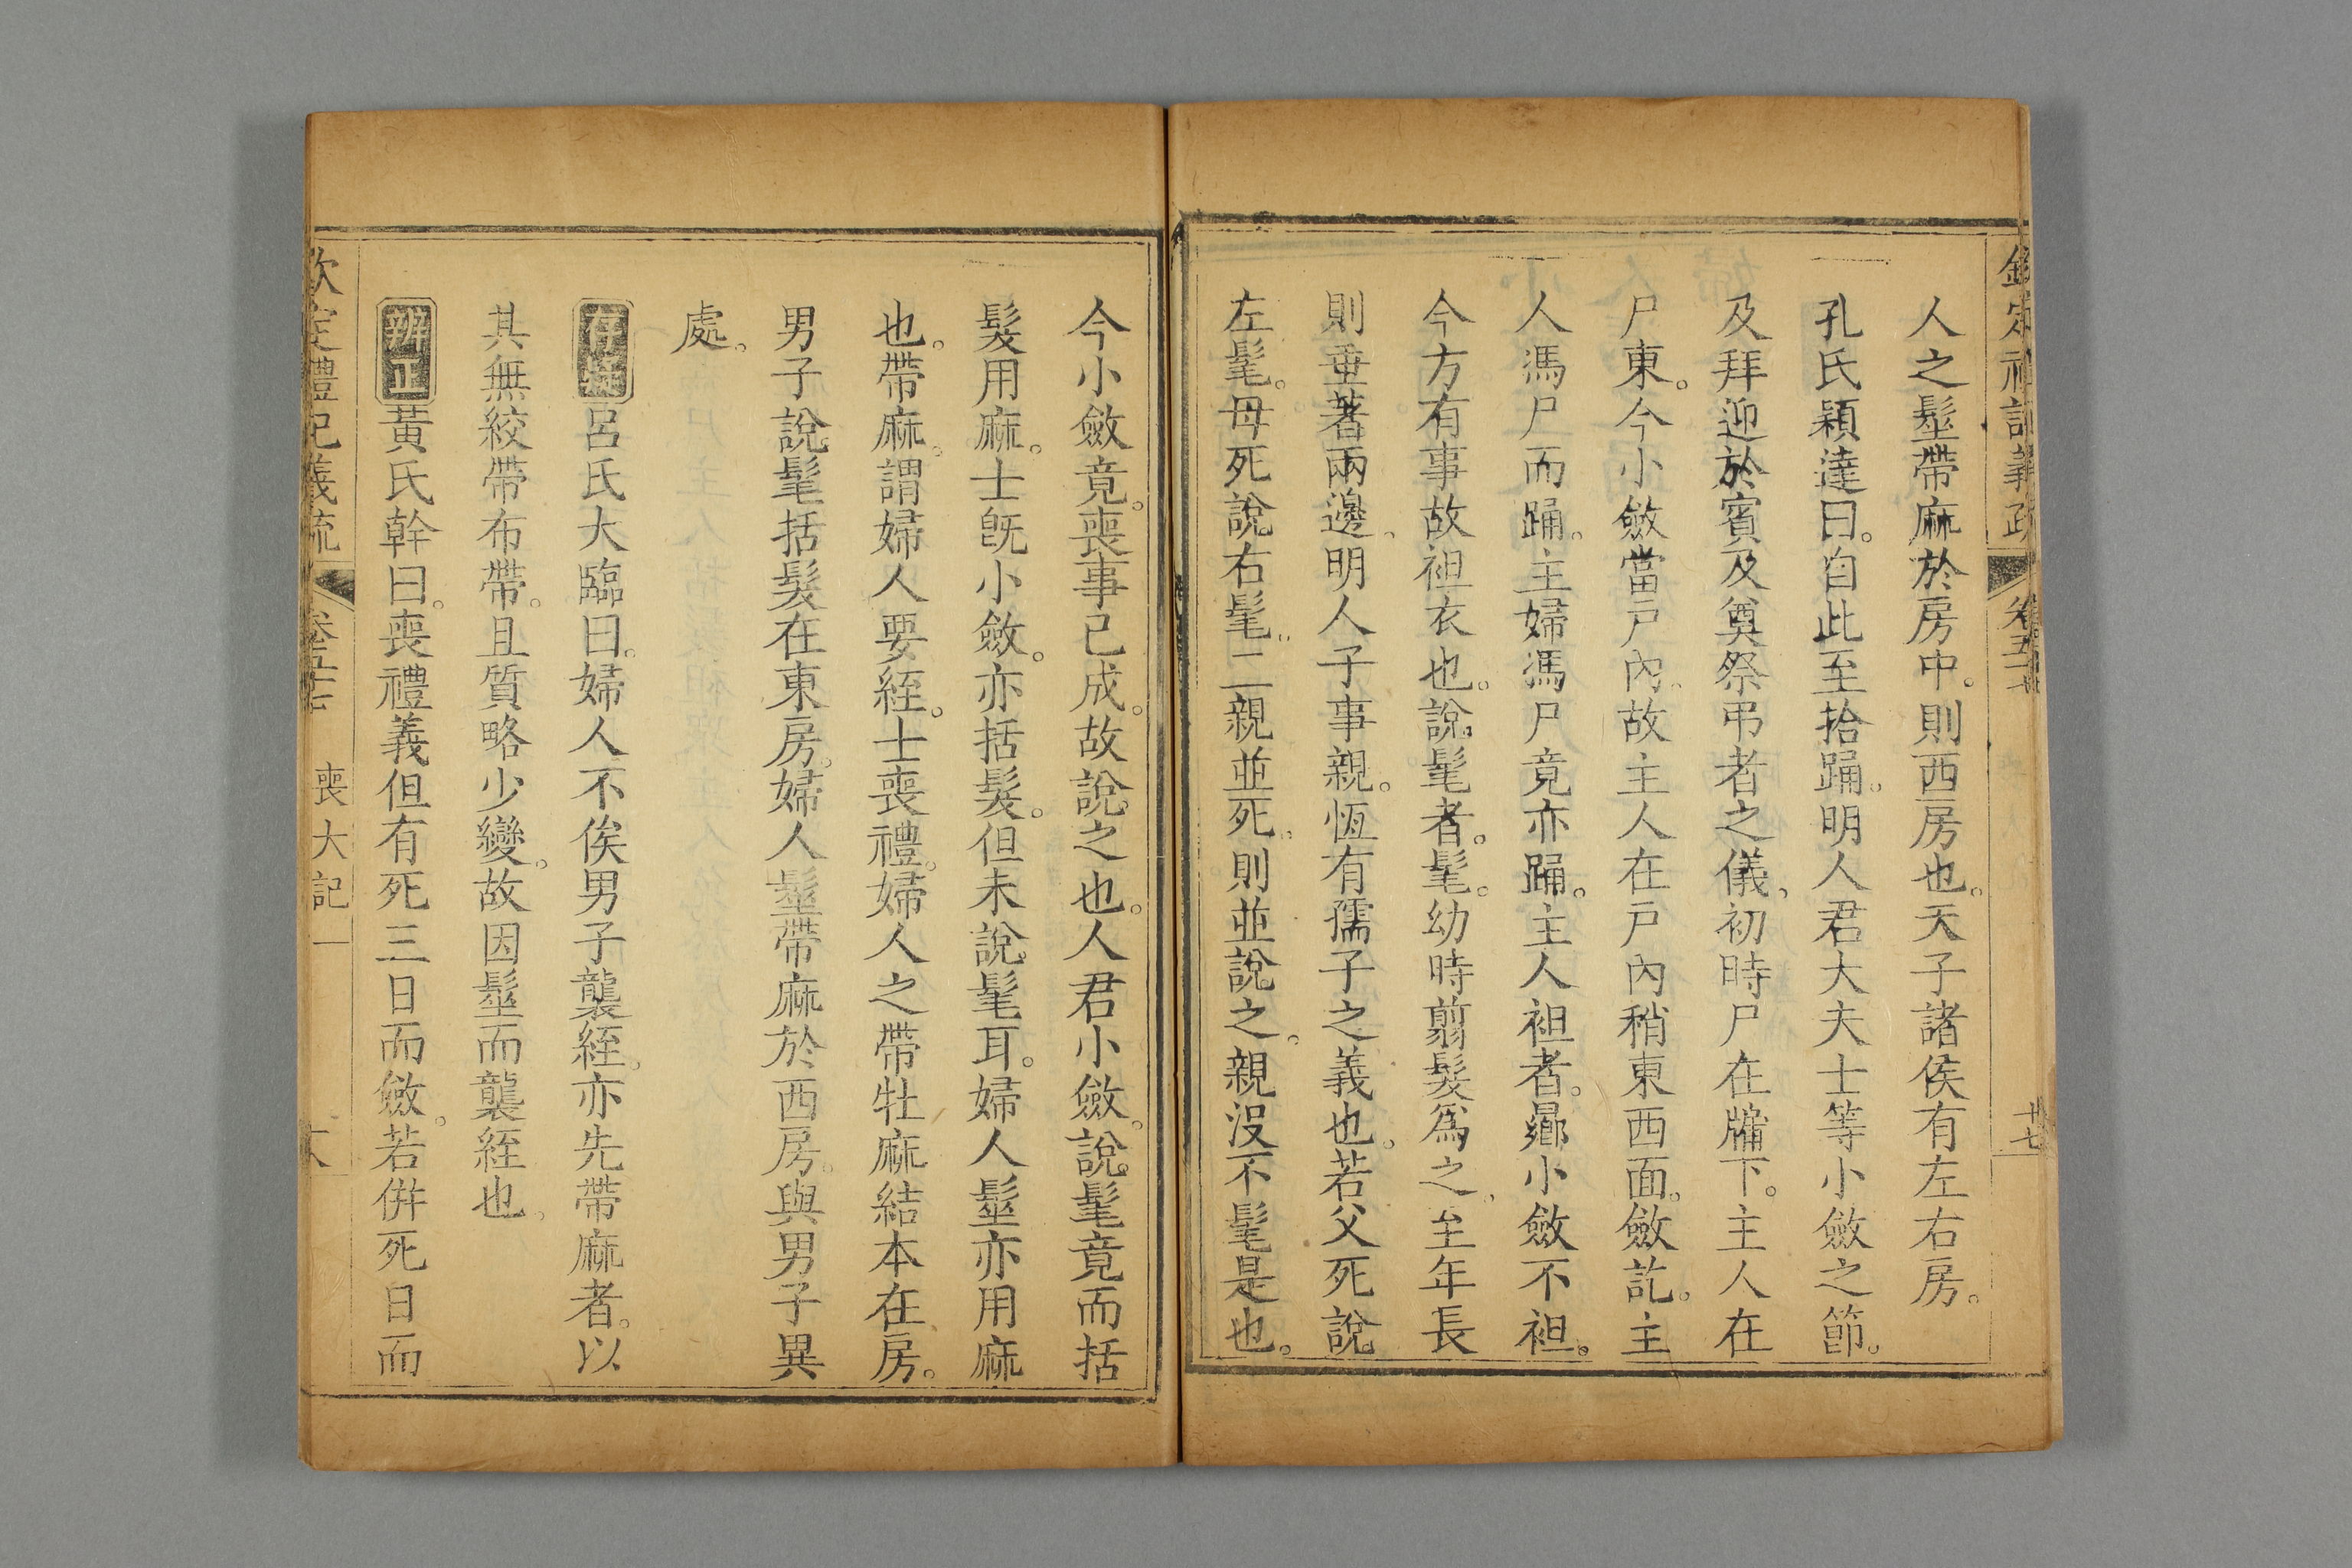 人之髽帶麻於房中。則西房也。天子諸侯有左右房。
孔氏穎達曰。自此至拾踊。明人君大夫士等小斂之節。
及拜迎於賓及奠祭弔者之儀。初時尸在牖下。主人在
尸東。今小斂當戶內。故主人在戶內稍東西面。斂訖。主
人馮尸而踊。主婦馮尸竟亦踊。主人袒者。曏小斂不袒。
今方有事故袒衣也。說髦者。髦。幼時翦髮爲之。至年長
則垂著兩邊。明人子事親。恆有孺子之義也。若父死說
左髦。母死說右髦。二親並死。則並說之。親沒不髦是也。
今小斂竟。喪事已成。故說之也。人君小斂。說髦竟而括
髮用麻。士旣小斂。亦括髮。但未說髦耳。婦人髽亦用麻
也。帶麻。謂婦人要絰。士喪禮。婦人之帶牡麻結本在房。
男子說髦括髮在東房。婦人髽帶麻於西房。與男子異
處。
存疑 呂氏大臨曰。婦人不俟男子襲絰。亦先帶麻者。以
其無絞帶布帶。且質略少變。故因髽而襲絰也。
辨正 黃氏幹曰。喪禮義但有死三日而斂。若併死日而
欽定禮記義疏 卷五十七 喪大記一